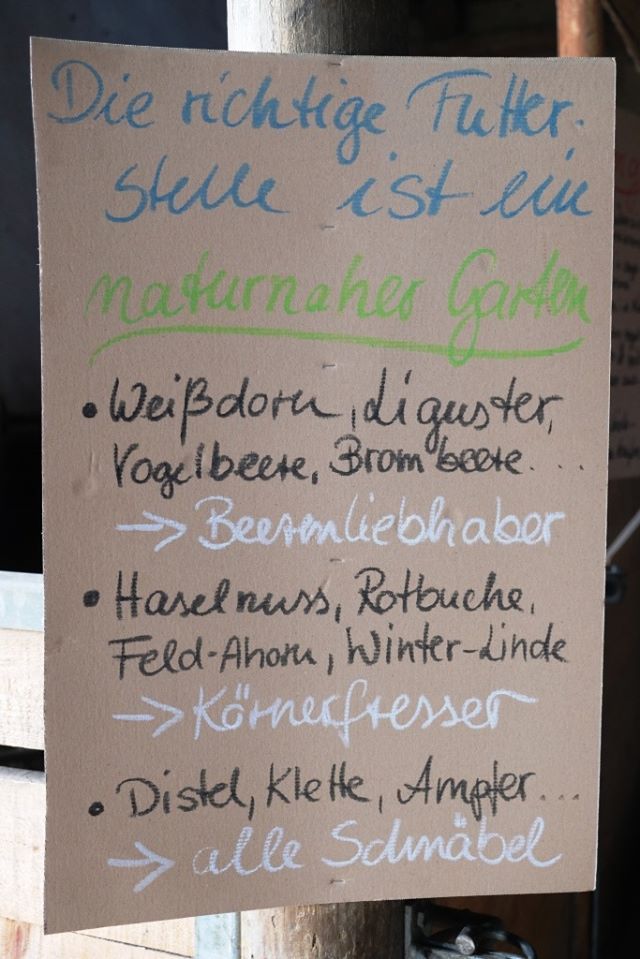 Die richtige Futter-
stelle ist ein
naturnaher Garten
• Weißdorn, Liguster,
Vogelbeere, Brombeere...
→ Beerenliebhaber
• Haselnuss, Rotbuche,
Feld-Ahorn, Winter-Linde
→ Körnerfresser
• Distel, Klette, Ampfer...
→ alle Schnäbel